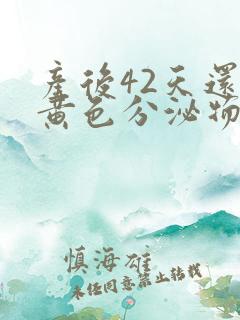 產後42天還
黃色分泌物
慎海雄
未經同意禁止轉載